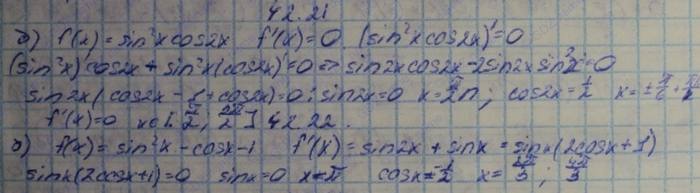 42.21
б) f(x)=sin²x cos2x f'(x)=0 (sin²x cos2x)'=0
(sin²x)' cos2x + sin²x(cos2x)'=0 => sin2x cos2x - 2sin2x sin²x=0
sin2x(cos2x - 1 + cos2x)=0; sin2x=0 x=π/2 n; cos2x=1/2 x=±π/6 +
f'(x)=0 x∈[ ; ] 42.22.
б) f(x)=sin²x-cosx-1 f'(x)=sin2x+sinx=sinx(2cosx+1)
sinx(2cosx+1)=0 sinx=0 x=π cosx=-1/2 x=2π/3; 4π/3